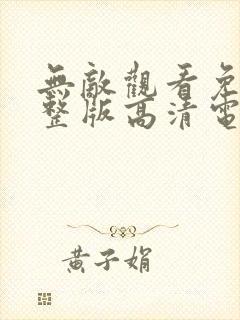 無敵觀看免
整版高清電
黃子娟